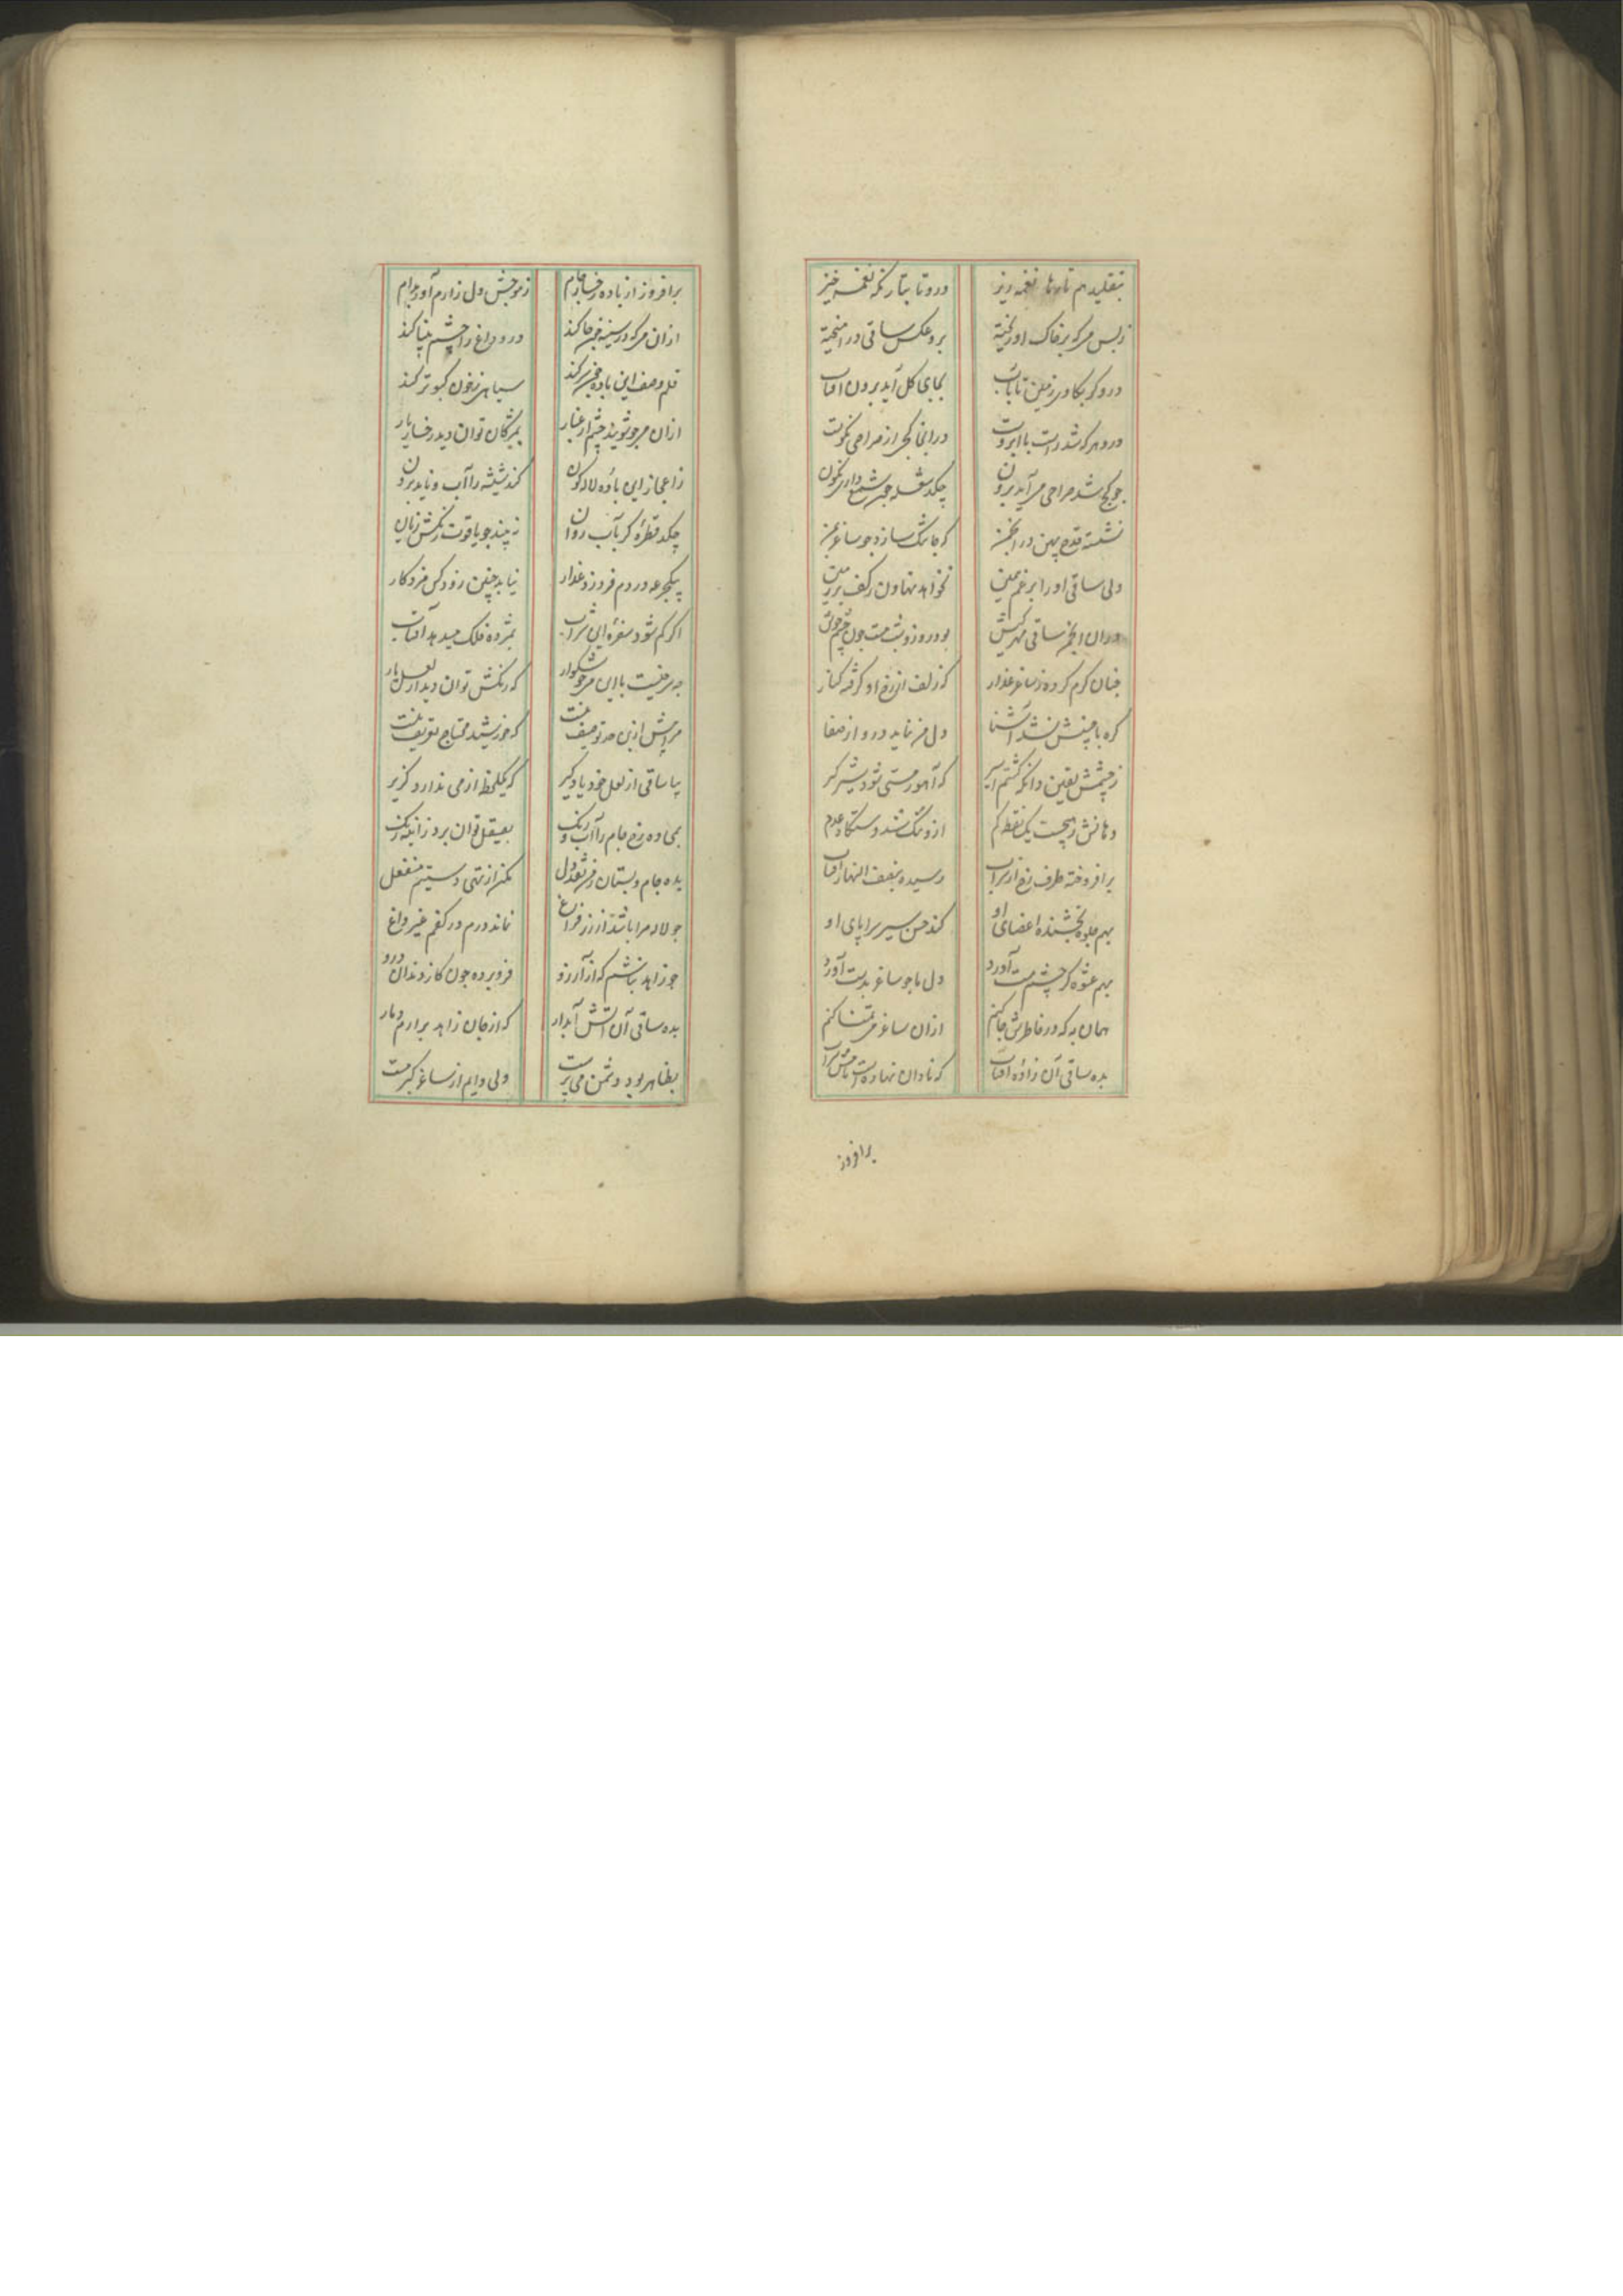 بتقلید هم تارها نغمه ریز
درو تا بتار نکه نغمه خیز
ز بس می که بر خاک او ریخته
برو عکس ساقی در آمیخته
درو گر بکاوی زمین تا بآب
بجای کل آید برون آفتاب
درو هر که شد راست با ابروست
در آنجا کجی از صراحی نکوست
چو کج شد صراحی می آید برون
چکد شعله چون شمع داری نکون
نشسته قدح پهن در انجمن
که جا تنک سازد چو ساغر بمن
ولی ساقی او را برغم زمین
نخواهد نهادن ز کف بر زمین
در آن انجمن ساقی مهرکیش
بود روز و شب مست چون چشم خویش
چنان گرم کرده ز ساغر عذار
که زلف از رخ او گرفته کنار
گره با جبینش نشد آشنا
دل من نماید درو از صفا
ز چشمش یقین دانکه گشتم اسیر
که آهو ز مستی شود شیر گیر
دهانش ز هیچست یک نقطه کم
ازو تنک شد دستگاه عدم
بر افروخته طرف رخ از شراب
رسیده بنصف النهار آفتاب
بهم جلوه بخشنده اعضای او
کند حسن سیر سراپای او
بهم عشوه گر چشم مست آورد
دل ما چو ساغر بدست آورد
همان به که در خاطرش جا کنم
از آن ساغر می تمنا کنم
بده ساقی آن زاده آفتاب
که نادان نهادست نامش شراب
برافروز
برافروز از باده رخسار جام
ز موجش دل زارم آور بدام
از آن می که در سینه چون جا کند
درو داغ را چشم بینا کند
قلم وصف این باده چون سر کند
سیاهی ز خون کبوتر کند
از آن می چو شویند چشم از غبار
بمژگان توان دید رخسار یار
ز اعجاز این باده لاله گون
کند شیشه را آب و ناید برون
چکد قطره گر بآب روان
نه بیند چو یاقوت رنگش زیان
بیکجرعه در دم فروزد عذار
نیابد چنین زود کس مزد کار
اگر کم شود سفره این شراب
بمژده فلک میدهد آفتاب
چه سرخیست با این می خوشگوار
که رنگش توان دید از لعل یار
مرا بیش ازین حد توصیف نیست
که خورشید محتاج تعریف نیست
بیا ساقی از لعل خود یاد گیر
که یکلحظه از می ندارد گزیر
بمی ده رخ جام را آب و رنگ
بصیقل توان برد ز آیینه زنگ
بده جام و بستان ز من نقد دل
مکن از تهی دستیم منفعل
چو لاله مرا باشد از زر فراغ
نماند درم در کفم غیر داغ
چو زاهد نباشم که از آرزو
فرو برده چون گاز دندان درو
بده ساقی آن آتش آبدار
که از جان زاهد برارم دمار
بظاهر بود دشمن می پرست
ولی دایم از ساغر کبر مست